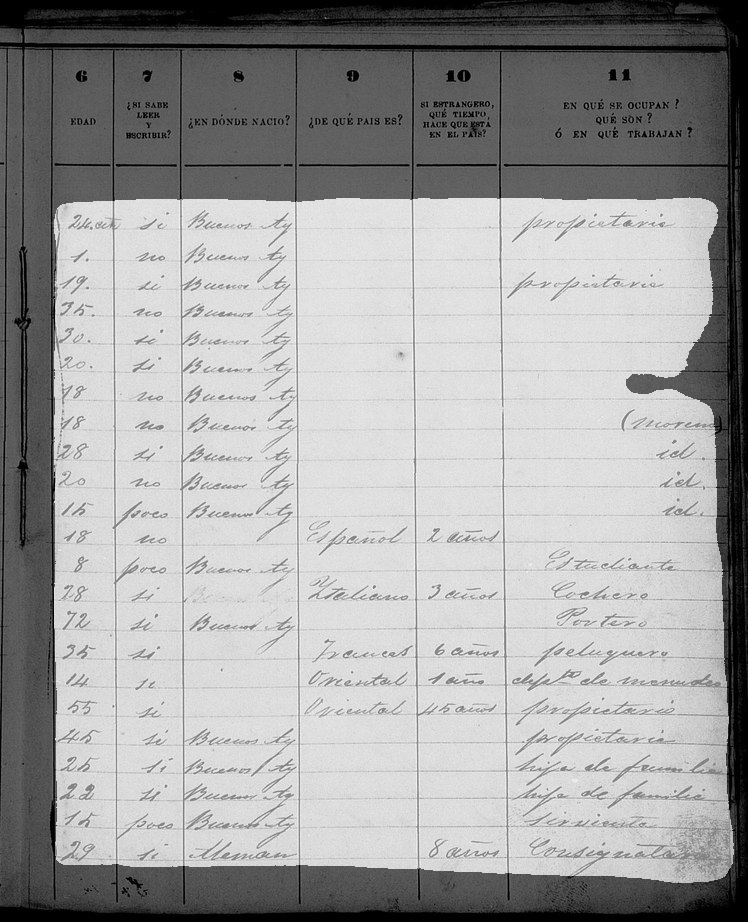 6 7 8 9 10 11
EDAD ¿SI SABE LEER Y ESCRIBIR? ¿EN DÓNDE NACIO? ¿DE QUÉ PAIS ES? SI ESTRANGERO, QUÉ TIEMPO HACE QUE ESTÁ EN EL PAÍS? EN QUÉ SE OCUPAN? QUÉ SON? Ó EN QUÉ TRABAJAN?
24 si Buenos Ay propietario
1. no Buenos Ay
19. si Buenos Ay propietario
35. no Buenos Ay
30. si Buenos Ay
20. si Buenos Ay
18 no Buenos Ay
18 no Buenos Ay (moreno)
28 si Buenos Ay id.
20 no Buenos Ay id.
15 poco Buenos Ay id.
18 no Español 2 años
8 poco Buenos Ay Estudiante
28 si Ytaliano 3 años Cochero
72 si Buenos Ay Portero
35 si Frances 6 años peluquero
14 si Oriental 1 año depte de menudeo
55 si Oriental 45 años propietario
45 si Buenos Ay propietaria
25 si Buenos Ay hija de familia
22 si Buenos Ay hija de familia
15 poco Buenos Ay sirvienta
29 si Aleman 8 años Consignatario